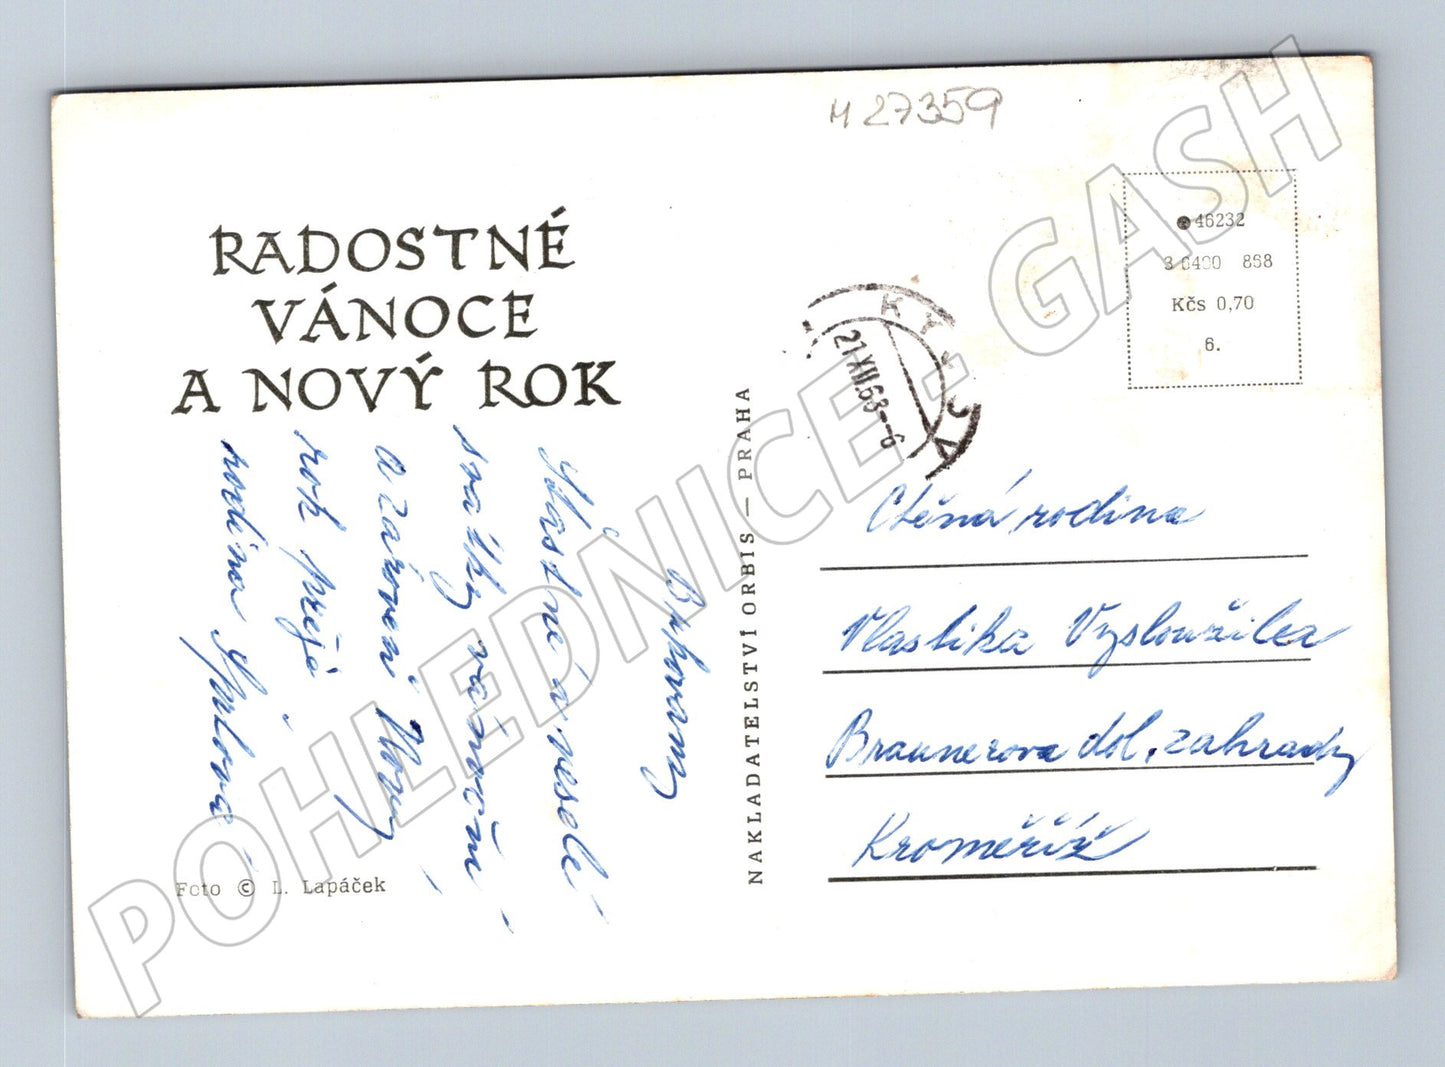 M 27359
RADOSTNÉ
VÁNOCE
A NOVÝ ROK
46232
3 0400 868
Kčs 0,70
6.
KYJOV
21.XII.68--6
Šťastné a veselé
svátky vánoční
a zároveň Nový
rok přeje
rodina
Foto © L. Lapáček
NAKLADATELSTVÍ ORBIS — PRAHA
Ctěná rodina
Vlastika Vysloužilea
Braunerova dol. zahrady
Kroměříž
POHLEDNICE - GASH